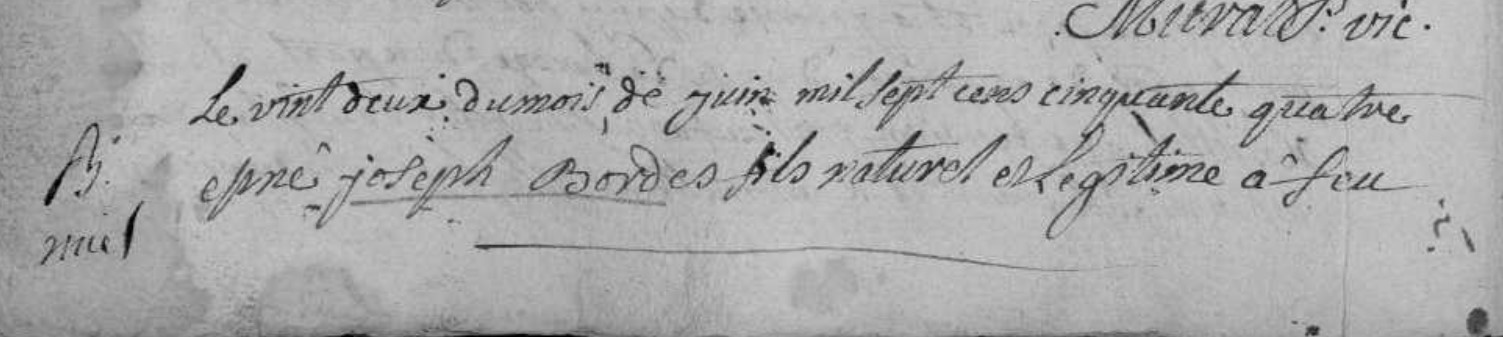 P.r vic.
Le vint deux du mois de juin mil sept cens cinquante quatre
B.
epnê joseph Bordes fils naturel et Legitime â feu